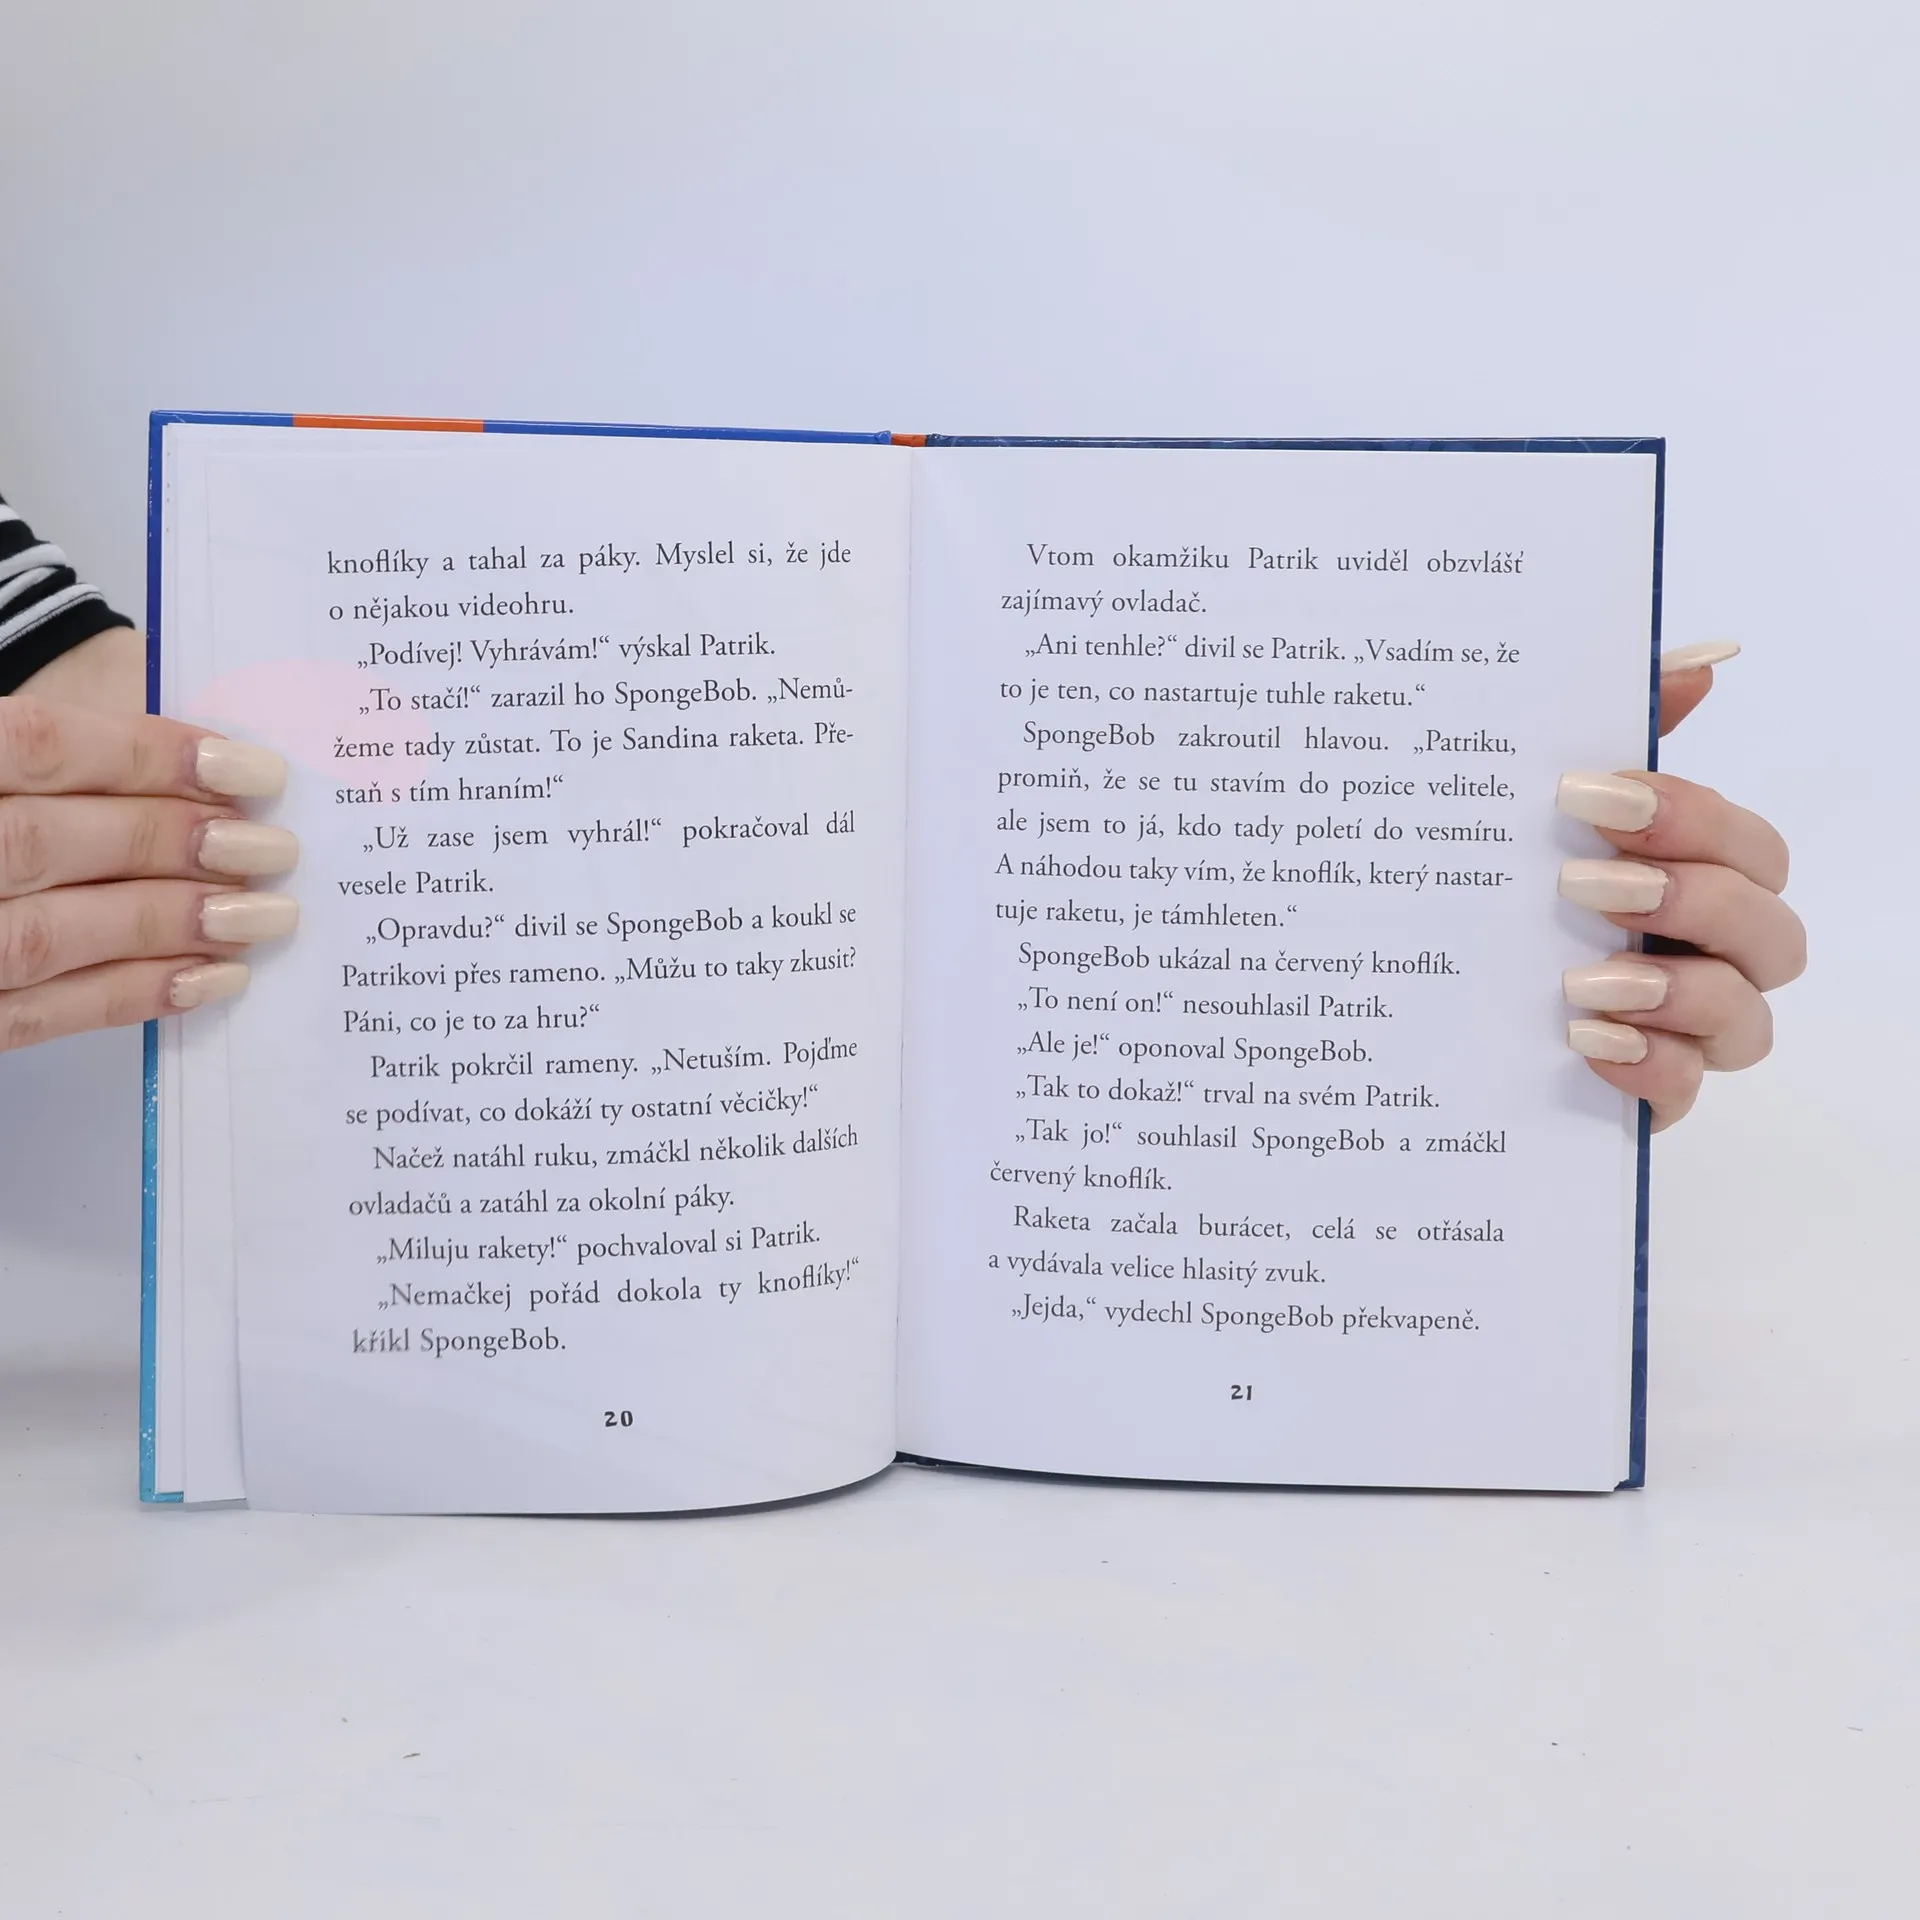 knoflíky a tahal za páky. Myslel si, že jde
o nějakou videohru.
„Podívej! Vyhrávám!“ výskal Patrik.
„To stačí!“ zarazil ho SpongeBob. „Nemů-
žeme tady zůstat. To je Sandina raketa. Pře-
staň s tím hraním!“
„Už zase jsem vyhrál!“ pokračoval dál
vesele Patrik.
„Opravdu?“ divil se SpongeBob a koukl se
Patrikovi přes rameno. „Můžu to taky zkusit?
Páni, co je to za hru?“
Patrik pokrčil rameny. „Netuším. Pojďme
se podívat, co dokáží ty ostatní věcičky!“
Načež natáhl ruku, zmáčkl několik dalších
ovladačů a zatáhl za okolní páky.
„Miluju rakety!“ pochvaloval si Patrik.
„Nemačkej pořád dokola ty knoflíky!“
křikl SpongeBob.
20
Vtom okamžiku Patrik uviděl obzvlášť
zajímavý ovladač.
„Ani tenhle?“ divil se Patrik. „Vsadím se, že
to je ten, co nastartuje tuhle raketu.“
SpongeBob zakroutil hlavou. „Patriku,
promiň, že se tu stavím do pozice velitele,
ale jsem to já, kdo tady poletí do vesmíru.
A náhodou taky vím, že knoflík, který nastar-
tuje raketu, je támhleten.“
SpongeBob ukázal na červený knoflík.
„To není on!“ nesouhlasil Patrik.
„Ale je!“ oponoval SpongeBob.
„Tak to dokaž!“ trval na svém Patrik.
„Tak jo!“ souhlasil SpongeBob a zmáčkl
červený knoflík.
Raketa začala burácet, celá se otřásala
a vydávala velice hlasitý zvuk.
„Jejda,“ vydechl SpongeBob překvapeně.
21